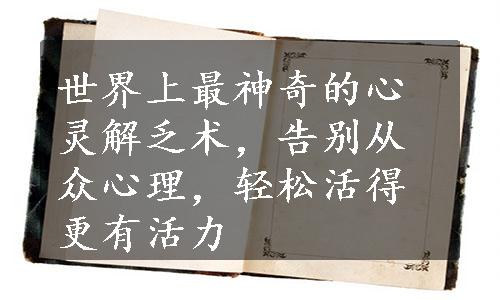 世界上最神奇的心
灵解乏术，告别从
众心理，轻松活得
更有活力